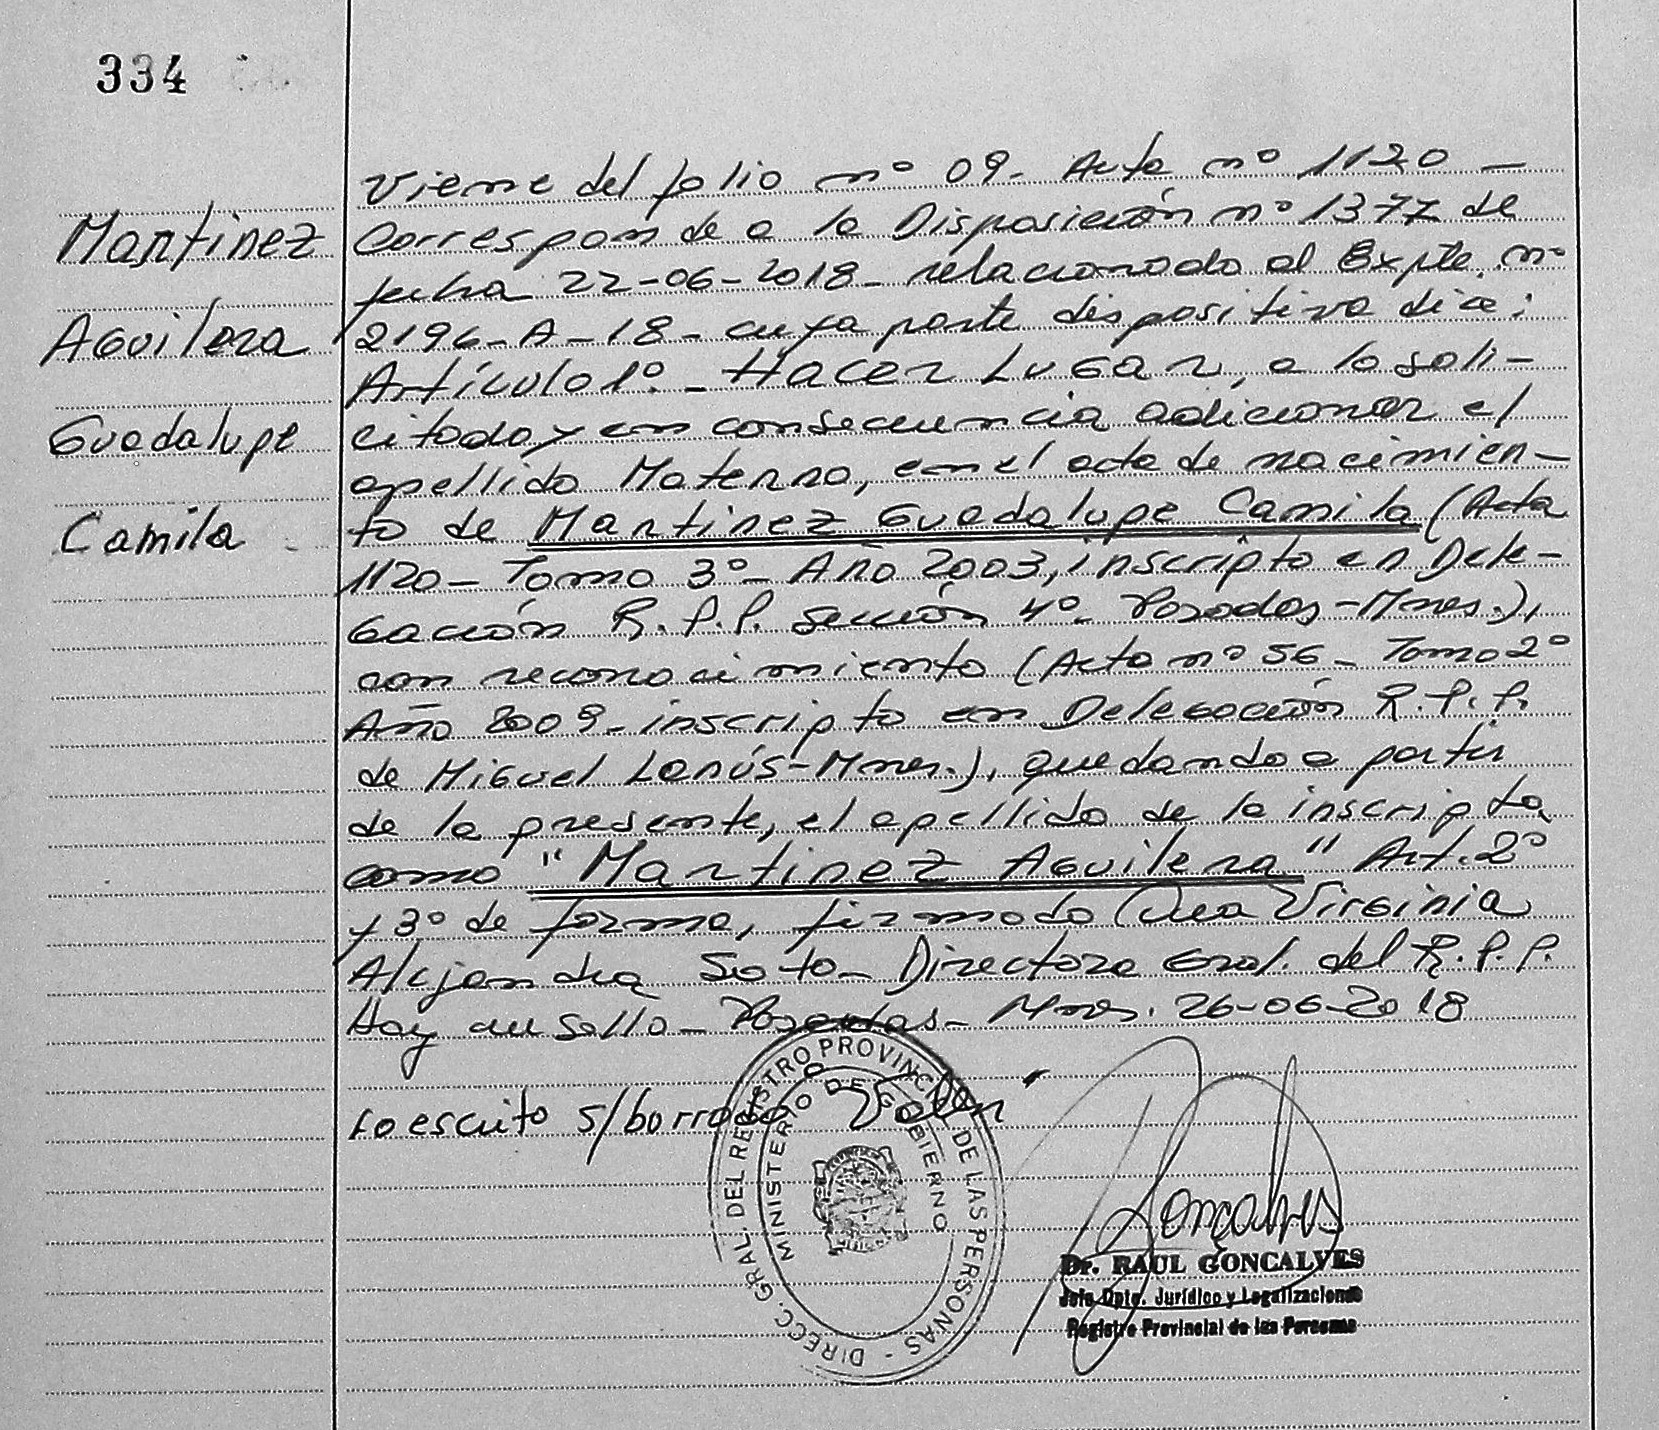 334
Martinez
Aguilera
Guadalupe
Camila
Viene del folio nº 09- Acta nº 1120 -
Corresponde a la Disposición nº 1377 de
fecha 22-06-2018- relacionado al Expte. nº
2196-A-18- cuya parte dispositiva dice:
Artículo 1º- Hacer Lugar, a lo soli-
citado y en consecuencia adicionar el
apellido Materno, en el acta de nacimien-
to de Martinez Guadalupe Camila (Acta
1120- Tomo 3º- Año 2003, inscripto en Dele-
gación R.P.P. Sección 4º- Posadas-Mnes.),
con reconocimiento (Acta nº 56- Tomo 2º
Año 2009- inscripto en Delegación R.P.P.
de Miguel Lanús-Mnes.), quedando a partir
de la presente, el apellido de la inscripta
como "Martinez Aguilera" Art. 2º
y 3º de forma, firmado Dra Virginia
Alejandra Soto- Directora Gral. del R.P.P.
Hay un sello- Posadas- Mnes. 26-06-2018
Lo escrito s/borrado Vale
DIRECC. GRAL. DEL REGISTRO PROVINCIAL DE LAS PERSONAS -
MINISTERIO DE GOBIERNO
Goncalves
Dr. RAUL GONCALVES
Jefe Dpto. Jurídico y Legalizaciones
Registro Provincial de las Personas